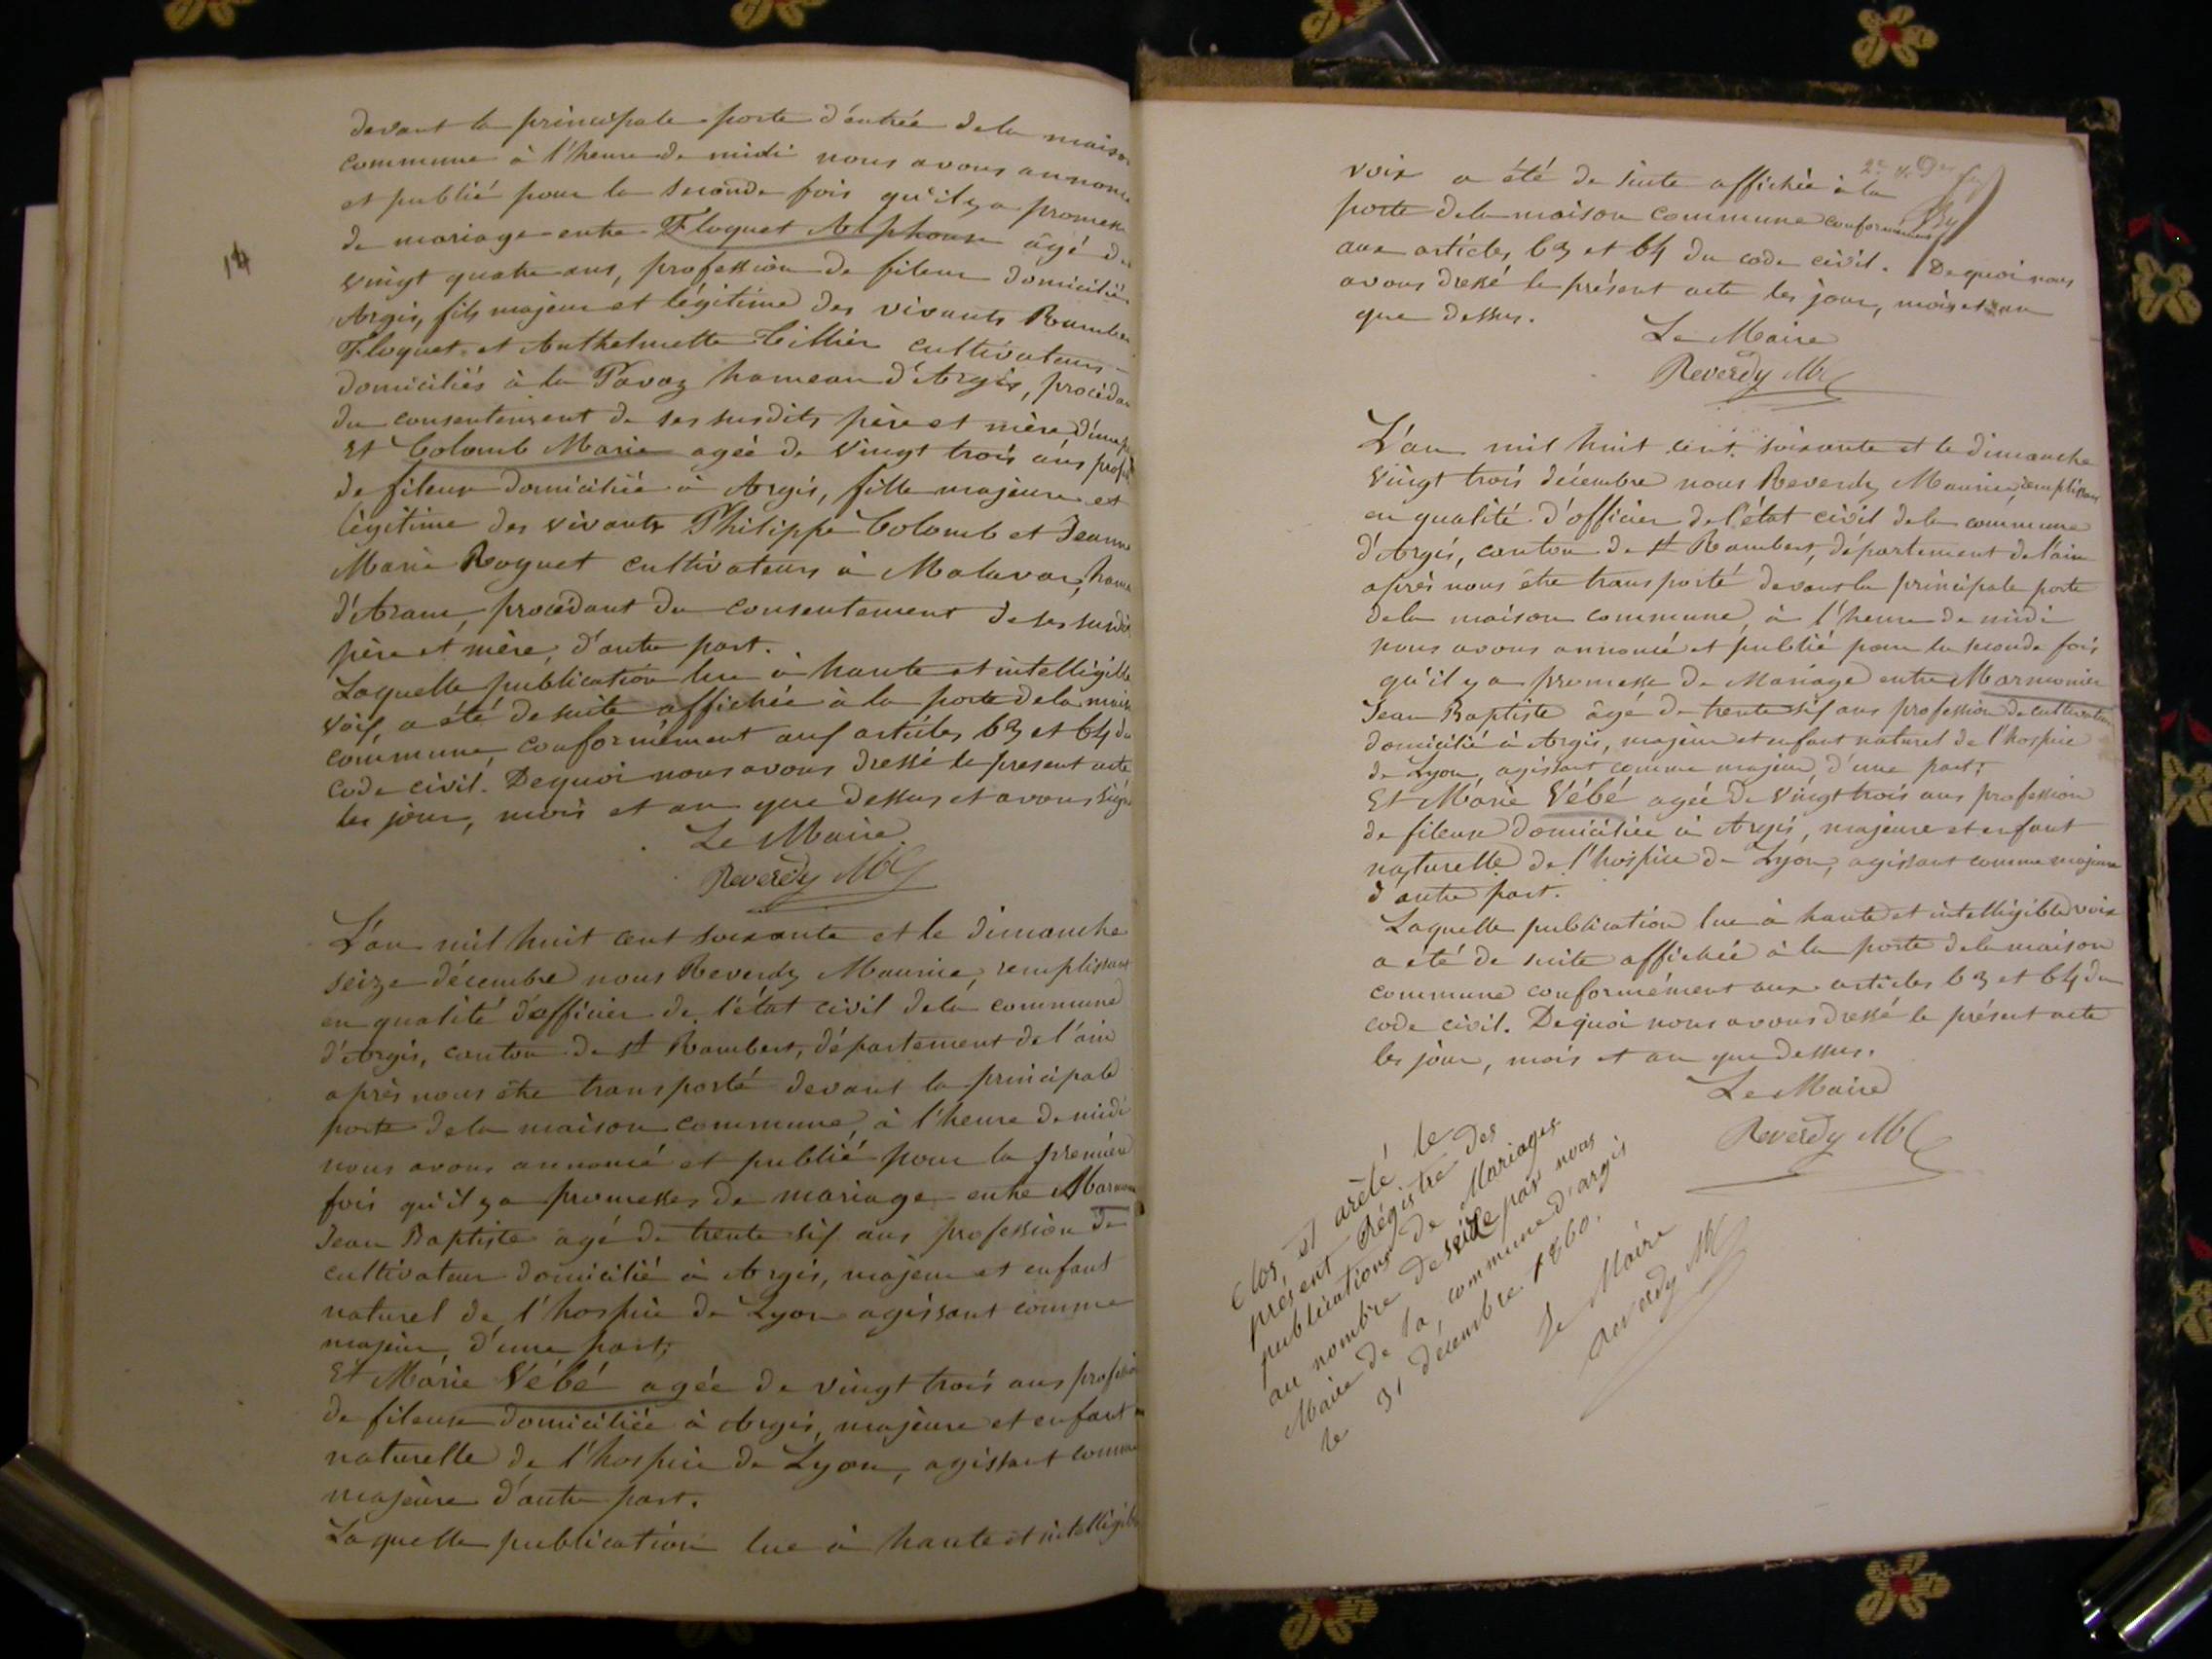 14
devant la principale porte d'entrée dela maison
commune à l'heure de midi nous avons annoncé
et publié pour la seconde fois qu'il y a promesse
de mariage entre Floquet Alphonse âgé de
vingt quatre ans, profession de fileur domicilié
Argis, fils majeur et légitime des vivants Rambert
Floquet et Anthelmette Tillier cultivateurs
domiciliés à la Pavaz hameau d'Argis, procédant
du consentement de ses susdits père et mère d'une part
Et Colomb Marie agée de vingt trois ans profession
de fileuse domiciliée à Argis, fille majeure et
légitime des vivants Philippe Colomb et Jeanne
Marie Roguet cultivateurs à Malaval, hameau
d'Aranc, procédant du consentement de ses susdits
père et mère, d'autre part.
Laquelle publication lue à haute et intelligible
voix, a été de suite affichée à la porte dela maison
commune, conformément aux articles 63 et 64 du
code civil. De quoi nous avons dressé le present acte
les jour, mois et an que dessus et avons signé
Le Maire
Reverdy Mce
L'an mil huit cent soixante et le dimanche
seize décembre nous Reverdy Maurice, remplissant
en qualité d'officier de l'état civil dela commune
d'Argis, canton de St Rambert, département de l'ain
après nous être transporté devant la principale
porte dela maison commune, à l'heure de midi
nous avons annoncé et publié pour la première
fois qu'il y a promesses de mariage entre Marmonier
Jean Baptiste agé de trente six ans profession de
cultivateur domicilié à Argis, majeur et enfant
naturel de l'hospice de Lyon agissant comme
majeur, d'une part;
Et Marie Vébé agée de vingt trois ans profession
de fileuse domiciliée à Argis, majeure et enfant
naturelle de l'hospice de Lyon, agissant comme
majeure d'autre part.
Laquelle publication lue à haute et intelligible
voix a été de suite affichée à la
porte dela maison commune conformément
aux articles 63 et 64 du code civil. De quoi nous
avons dressé le présent acte les jour, mois et an
que dessus.
Le Maire
Reverdy Mce
L'an mil huit cent soixante et le dimanche
vingt trois décembre nous Reverdy Maurice, remplissant
en qualité d'officier de l'état civil dela commune
d'Argis, canton de St Rambert, département de l'ain
après nous être transporté devant la principale porte
dela maison commune, à l'heure de midi
nous avons annoncé et publié pour la seconde fois
qu'il y a promesse de Mariage entre Marmonier
Jean Baptiste âgé de trente six ans profession de cultivateur
domicilié à Argis, majeur et enfant naturel de l'hospice
de Lyon, agissant comme majeur, d'une part;
Et Marie Vébé agée de vingt trois ans profession
de fileuse domiciliée à Argis, majeure et enfant
naturelle de l'hospice de Lyon, agissant comme majeure
d'autre part.
Laquelle publication lue à haute et intelligible voix
a été de suite affichée à la porte dela maison
commune conformément aux articles 63 et 64 du
code civil. De quoi nous avons dressé le présent acte
les jour, mois et an que dessus.
Le Maire
Reverdy Mce
Clos et arêté le
présent Régistre des
publications de Mariages
au nombre de seize par nous
Maire de la commune d'argis
le 31 décembre 1860.
Le Maire
Reverdy Mce